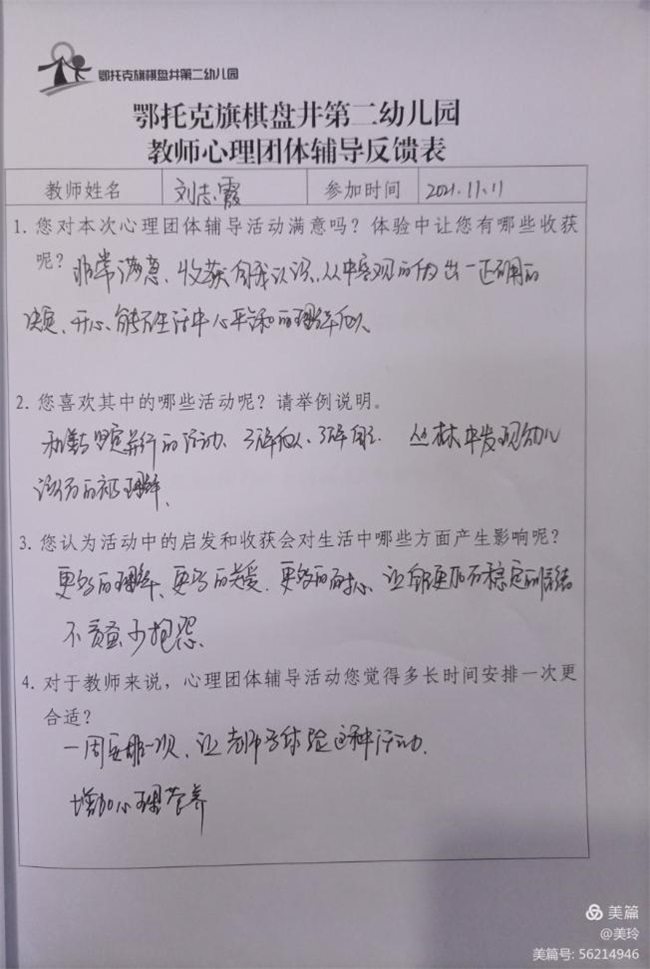 鄂托克旗棋盘井第二幼儿园
鄂托克旗棋盘井第二幼儿园
教师心理团体辅导反馈表
教师姓名 刘志霞 参加时间 2021.11.11
1. 您对本次心理团体辅导活动满意吗？体验中让您有哪些收获
呢？非常满意、收获自我认识、从中客观的作出一正确的
决定、开心、能在生活中心平气和的理解他人
2. 您喜欢其中的哪些活动呢？请举例说明。
并行的活动、了解他人、了解自己. 丛林中发现幼儿
的被理解、
3. 您认为活动中的启发和收获会对生活中哪些方面产生影响呢？
更多的理解、更多的关爱、更多的耐心、让自己更加有稳定的情绪
不责备少抱怨.
4. 对于教师来说，心理团体辅导活动您觉得多长时间安排一次更
合适？
一周安排一次、让老师多体验这种活动.
增加心理营养
美篇
@美玲
美篇号: 56214946